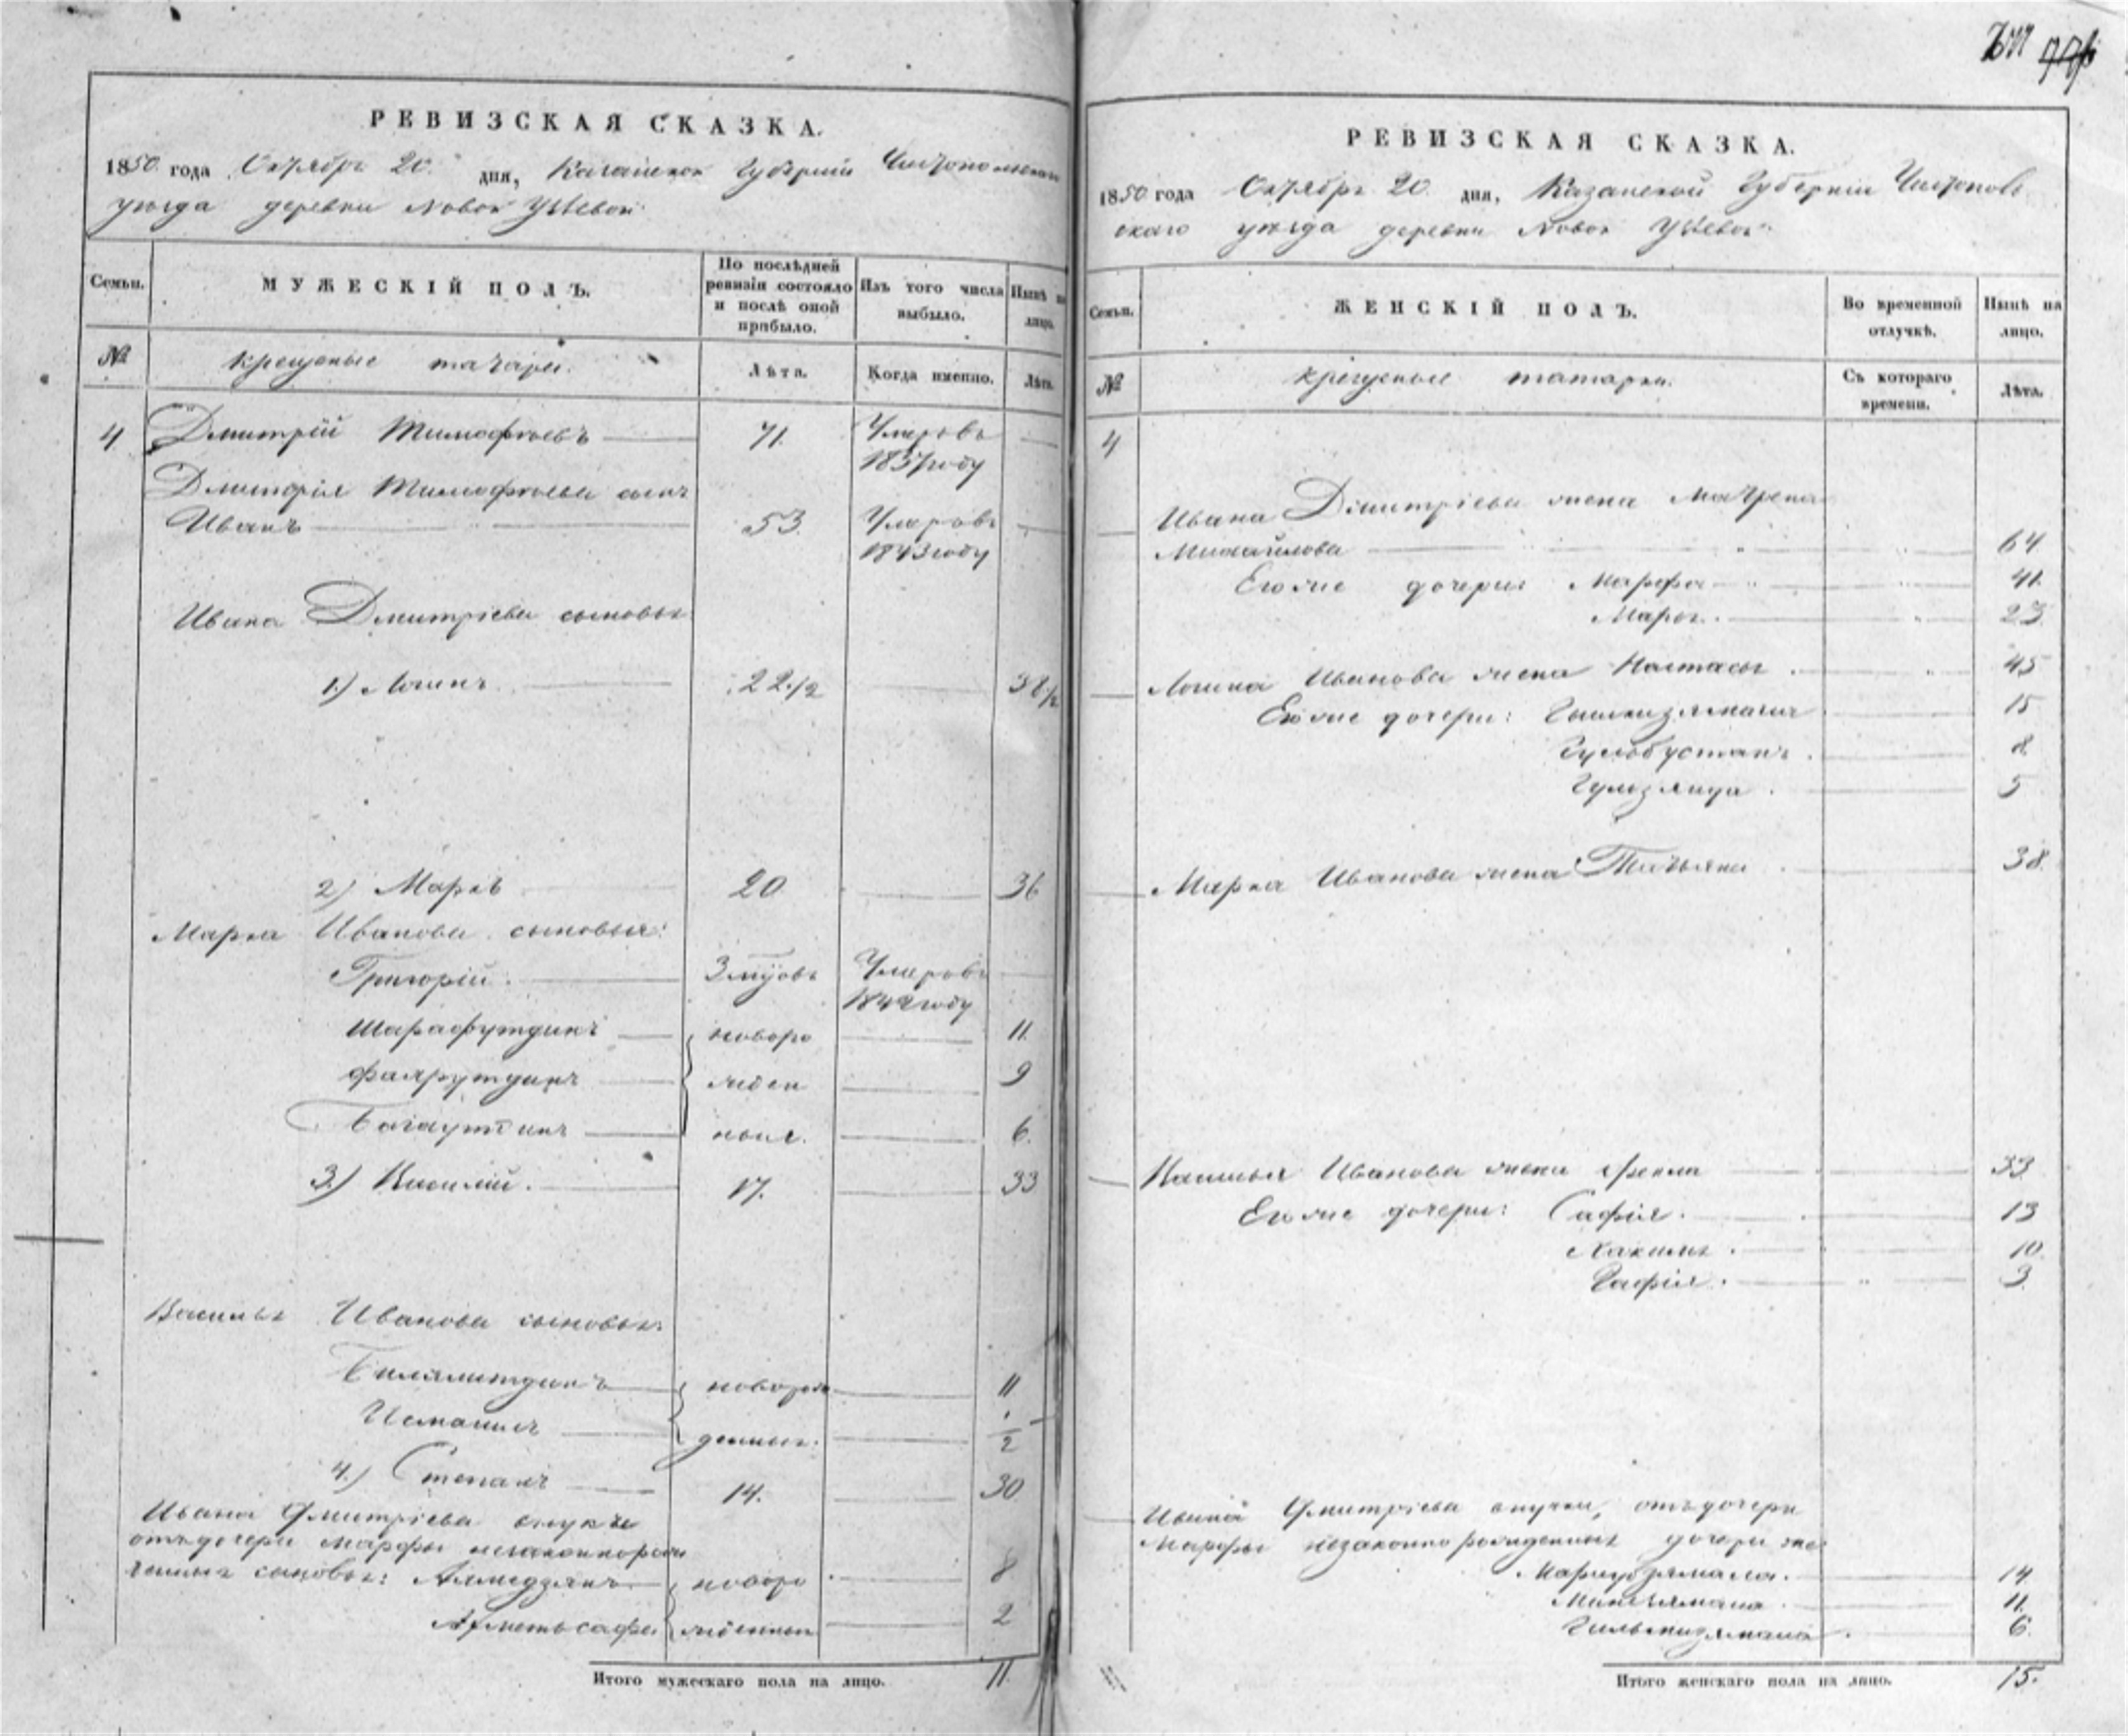 РЕВИЗСКАЯ СКАЗКА.
1850 года Октября 20 дня, Казанской Губернии Чистопольскаго
уезда деревни Новой
Семьи. МУЖЕСКІЙ ПОЛЪ. По послѣдней ревизіи состояло и послѣ оной прибыло. Изъ того числа выбыло. Нынѣ на лицо.
№ крещеные татары. Лѣта. Когда именно. Лѣта.
4 Дмитрій Тимофѣевъ 71. Умеръ въ 1837 году
Дмитрія Тимофѣева сынъ
Иванъ 53 Умеръ въ 1843 году
Ивана Дмитріева сыновья
1.) Логинъ 22 1/2 38 1/2
2) Маркъ 20 36
Марка Иванова сыновья:
Григорій. Умеръ въ 1842 году
Шарафутдинъ новоро 11.
Фахрутдинъ жден 9
Багаутдинъ ные. 6.
3.) Василій. 17. 33
Василья Иванова сыновья
Билялитдинъ новорож 11
Исмаилъ денные. 1/2
4.) Степанъ 14. 30
Ивана Дмитріева внуки
отъ дочери Марфы незаконнорож
денные сыновья: Ахмедзянъ новоро 8
Ахметьсафа жденные 2
Итого мужескаго пола на лицо. 11.
РЕВИЗСКАЯ СКАЗКА.
1850 года Октября 20 дня, Казанской Губерніи Чистополь
скаго уезда деревни Новой
Семьи. ЖЕНСКІЙ ПОЛЪ. Во временной отлучкѣ. Нынѣ на лицо.
№ крещеные татарки. Съ котораго времени. Лѣта.
4
Ивана Дмитріева жена Матрена
Михайлова 64
Его же дочери: Марфа 41.
Марья. 23.
Логина Иванова жена Настасья 45
Его же дочери: 15
Гулобустанъ. 8
5
Марка Иванова жена Татьяна 38.
Василья Иванова жена Фекла 33.
Его же дочери: Сафія. 13
Хакима. 10.
Гафія. 3
Ивана Дмитріева внучки, отъ дочери
Марфы незаконнорожденныя дочери же:
14
11.
6.
Итого женскаго пола на лицо. 15.